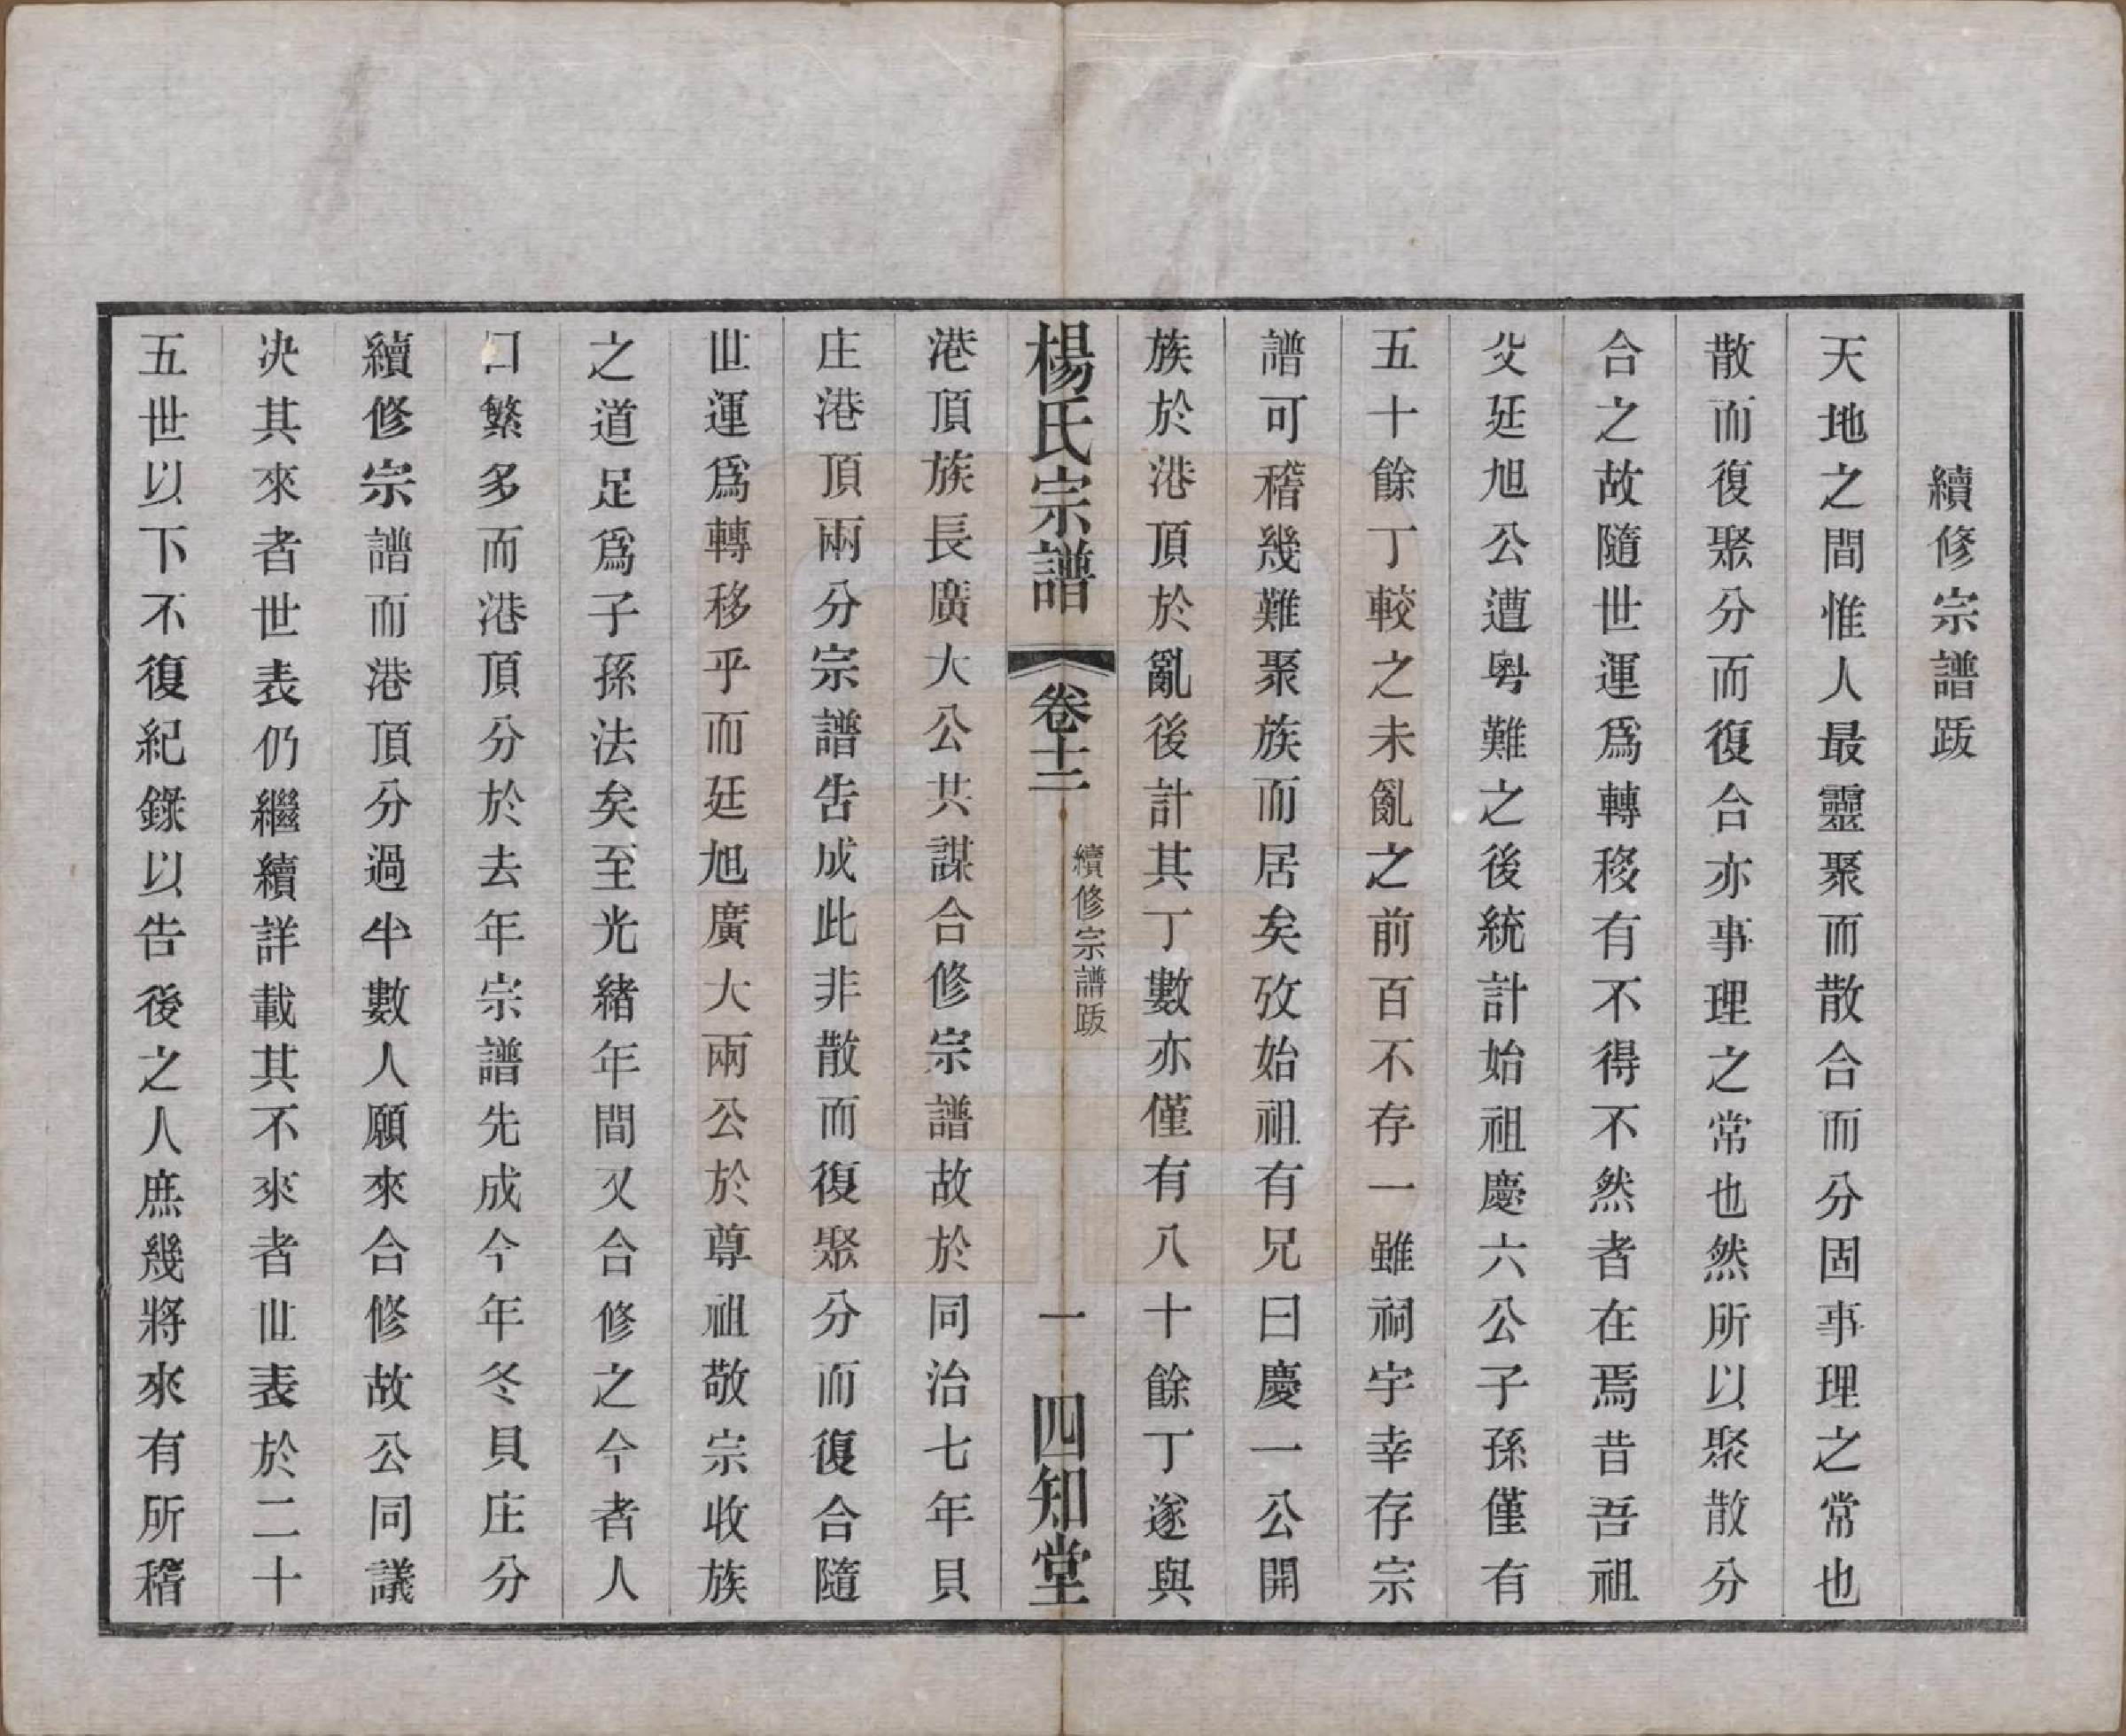 續修宗譜跋
天地之間惟人最靈聚而散合而分固事理之常也
散而復聚分而復合亦事理之常也然所以聚散分
合之故隨世運爲轉移有不得不然者在焉昔吾祖
父廷旭公遭粵難之後統計始祖慶六公子孫僅有
五十餘丁較之未亂之前百不存一雖祠宇幸存宗
譜可稽幾難聚族而居矣攷始祖有兄曰慶一公開
族於港頂於亂後計其丁數亦僅有八十餘丁遂與
楊氏宗譜 卷十二 續修宗譜跋 一 四知堂
港頂族長廣大公共謀合修宗譜故於同治七年貝
庄港頂兩分宗譜告成此非散而復聚分而復合隨
世運爲轉移乎而廷旭廣大兩公於尊祖敬宗收族
之道足爲子孫法矣至光緒年間又合修之今者人
口繁多而港頂分於去年宗譜先成今年冬貝庄分
續修宗譜而港頂分過半數人願來合修故公同議
决其來者世表仍繼續詳載其不來者世表於二十
五世以下不復紀錄以告後之人庶幾將來有所稽